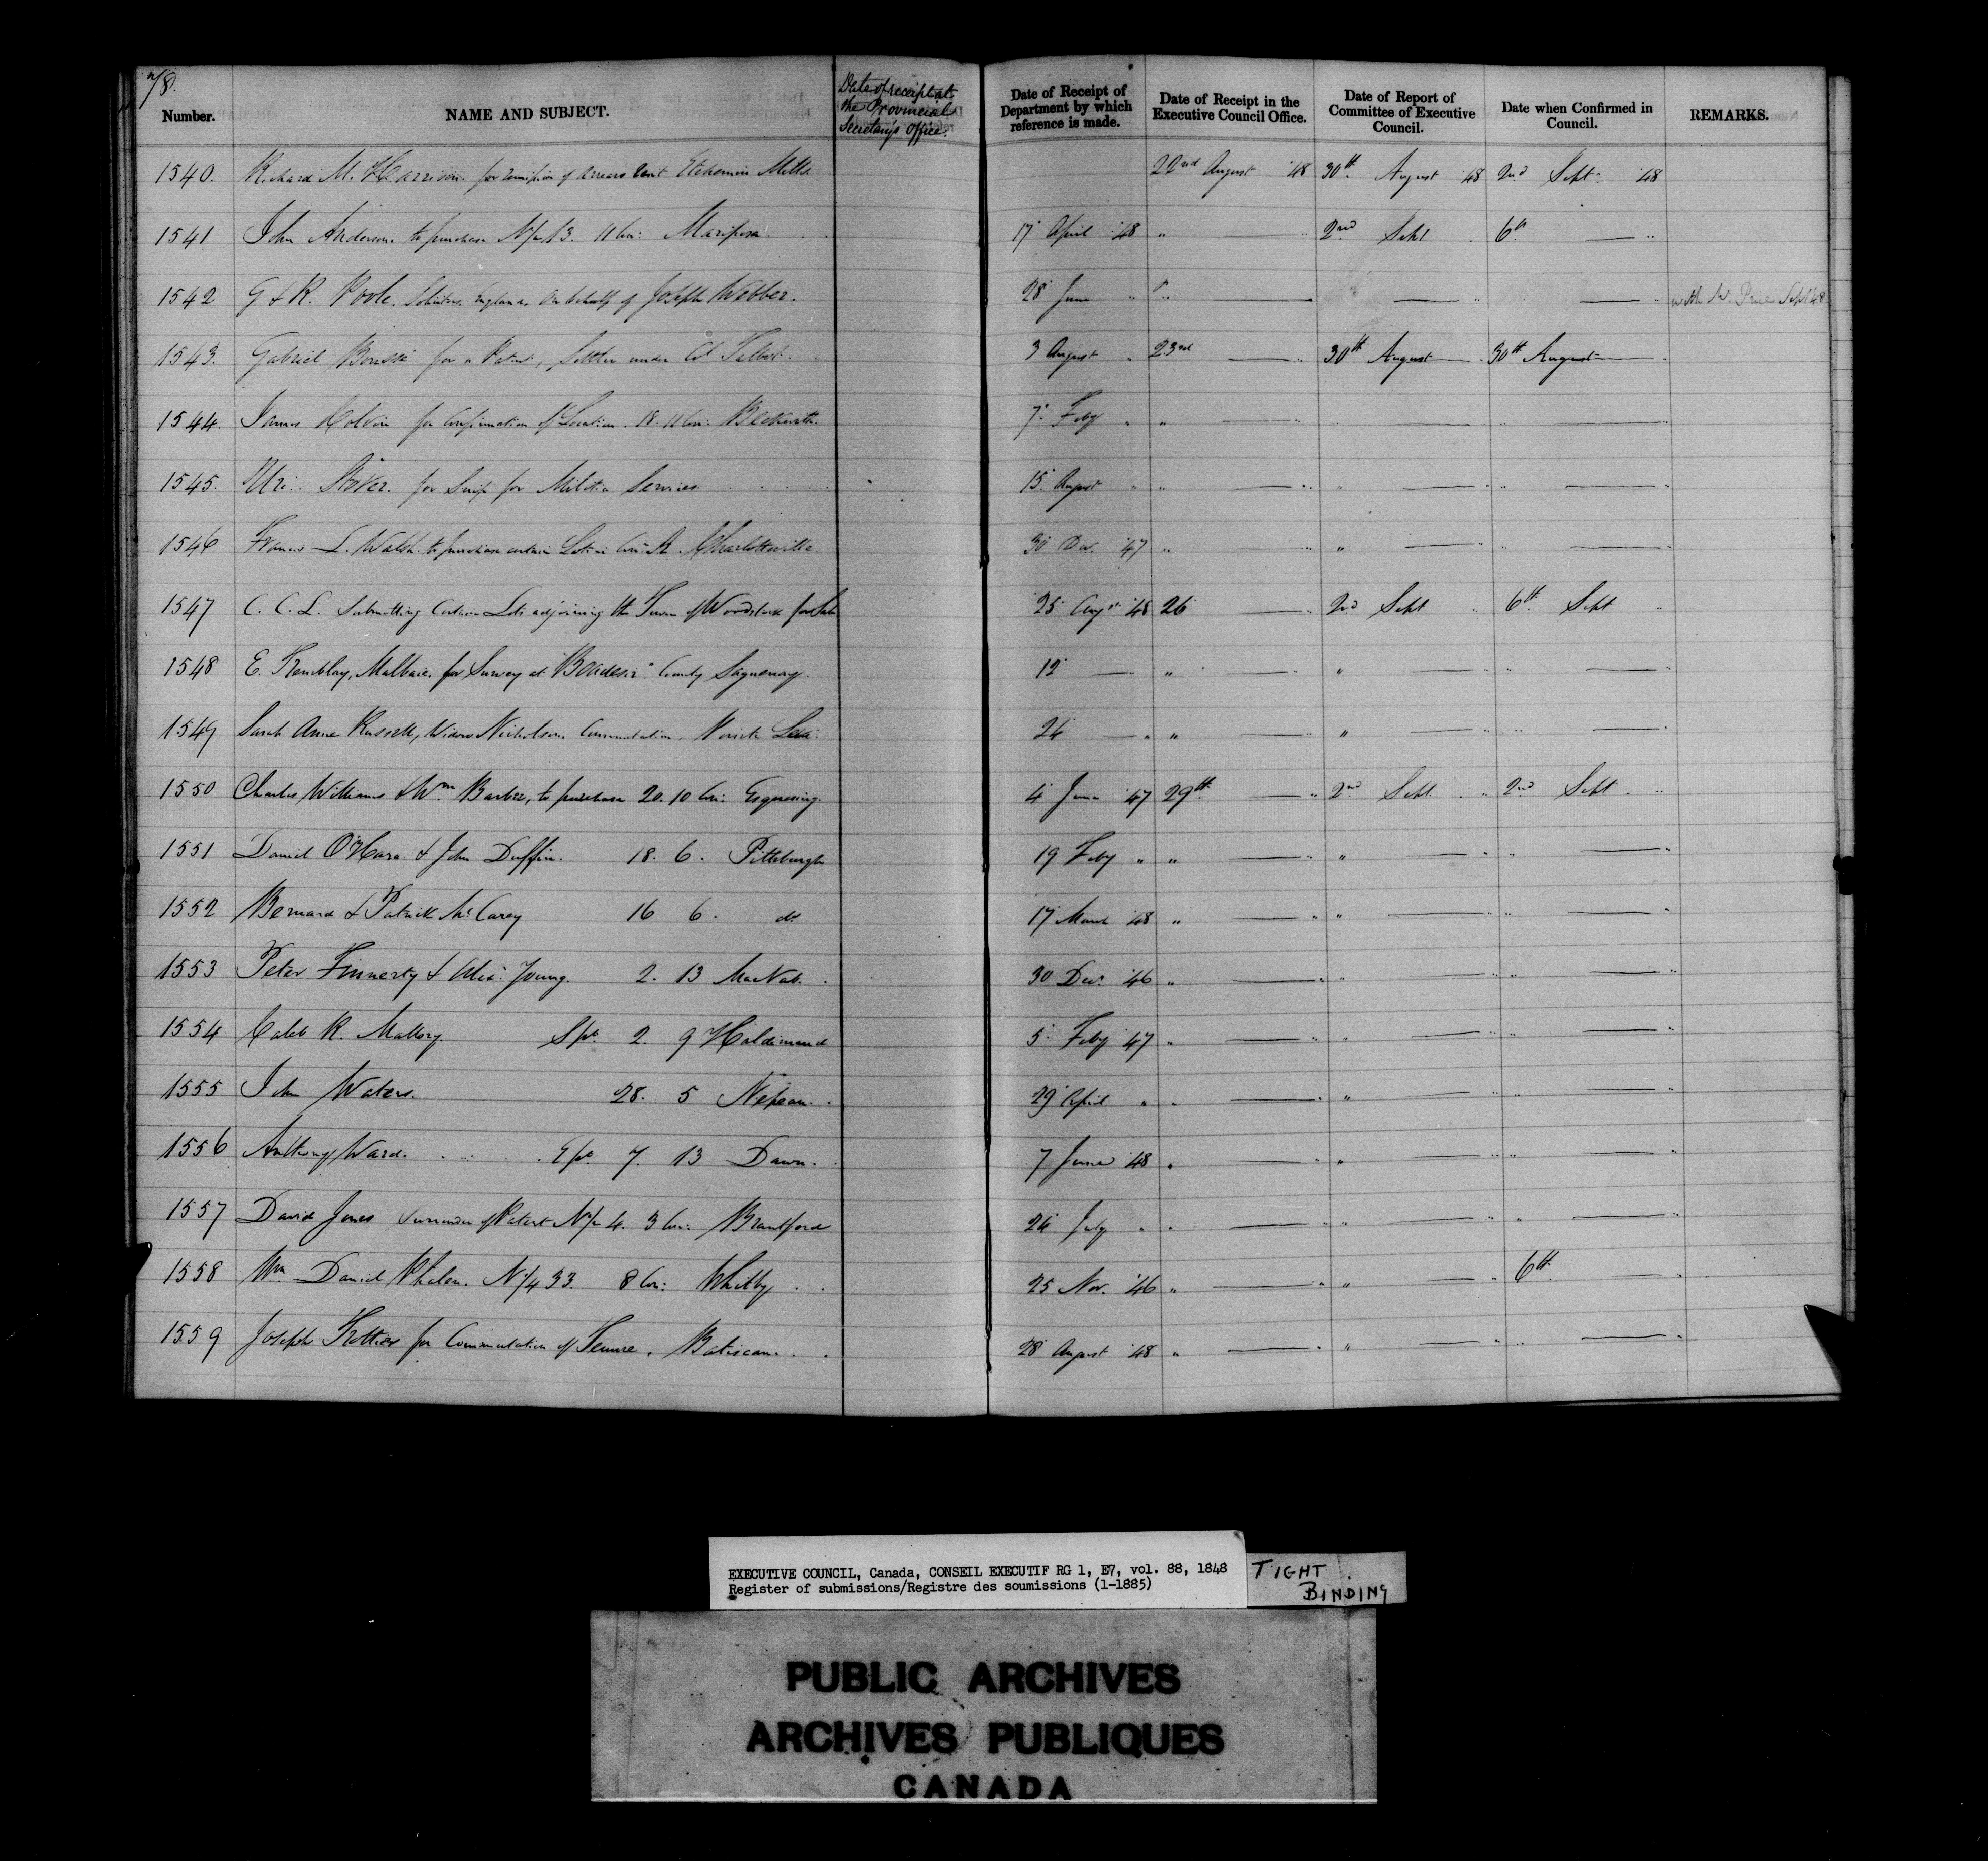 78.
Number. NAME AND SUBJECT. Date of receipt at the Provincial Secretary's Office. Date of Receipt of Department by which reference is made. Date of Receipt in the Executive Council Office. Date of Report of Committee of Executive Council. Date when Confirmed in Council. REMARKS.
1540. Richard M. Harrison for remission of arrears Rent Etchemin Mills 22nd August '48 30th August 48 2nd Sept. '48
1541 John Anderson to purchase N 1/2 13. 11 Con: Mariposa 17 April '48 " — " 2nd Sept 6th — "
1542 G & R. Poole. Solicitors. England. On behalf of Joseph Webber. 28 June " " — — " — " with Mr. Price Sept 48
1543. Gabriel for a Patent, Settler under Col Talbot. 3 August " 23rd — " 30th August — 30th August —
1544. James for Confirmation of Location. 18. 11 Con: Beckwith. 7. Feby " " — " — " " — "
1545. Uri for Scrip for Militia Services 15. August " " — " " — " " — "
1546 Francis L. Walsh. to purchase certain Lots in Con: A. Charlotteville 30 Dec. '47 " " " — " " — "
1547 C. C. L. Submitting Certain Lots adjoining the Town of Woodstock for Sale 25 Augst '48 26 — " 2nd Sept " 6th Sept "
1548 E. Tremblay, Malbaie, for Survey at County Saguenay. 12 — " — " " — " " — "
1549 Sarah Anne Russell, Widow Nicholson. Commutation. 24 — " " — " " — " " — "
1550 Charles Williams & Wm Barber, to purchase 20. 10 Con: Esquesing. 4 June '47 29th — " 2nd Sept. " 2nd Sept. "
1551 Daniel O'Hara & John Duffin. 18. 6. Pittsburgh 19 Feby " " — " " — " " — "
1552 Bernard & Patrick McCarey 16 6. do 17 March '48 " — " " — " " — "
1553 Peter Finnerty & Alex: Young. 2. 13 MacNab. 30 Dec. '46 " — " " — " " — "
1554 Caleb R. Mallory. S pt. 2. 9 Haldimand 5. Feby '47 " — " " — " " — "
1555 John Waters. 28. 5 Nepean. 29 April " " — " " — " " — "
1556 Anthony Ward. E pt. 7. 13 Dawn. 7 June '48 " — " " — " " — "
1557 David Jones Surrender of Patent N 1/2 4. 3 Con: Brantford 24 July " " — " " — " " — "
1558 Wm Daniel Phelan. N 1/4 33. 8 Con: Whitby 25 Nov. '46 " — " " — " 6th. — "
1559 Joseph Trottier for Commutation of Tenure. Batiscan. 28 August '48 " — " " — " " — "
EXECUTIVE COUNCIL, Canada, CONSEIL EXECUTIF RG 1, E7, vol. 88, 1848
Register of submissions/Registre des soumissions (1-1885)
TIGHT BINDING
PUBLIC ARCHIVES
ARCHIVES PUBLIQUES
CANADA